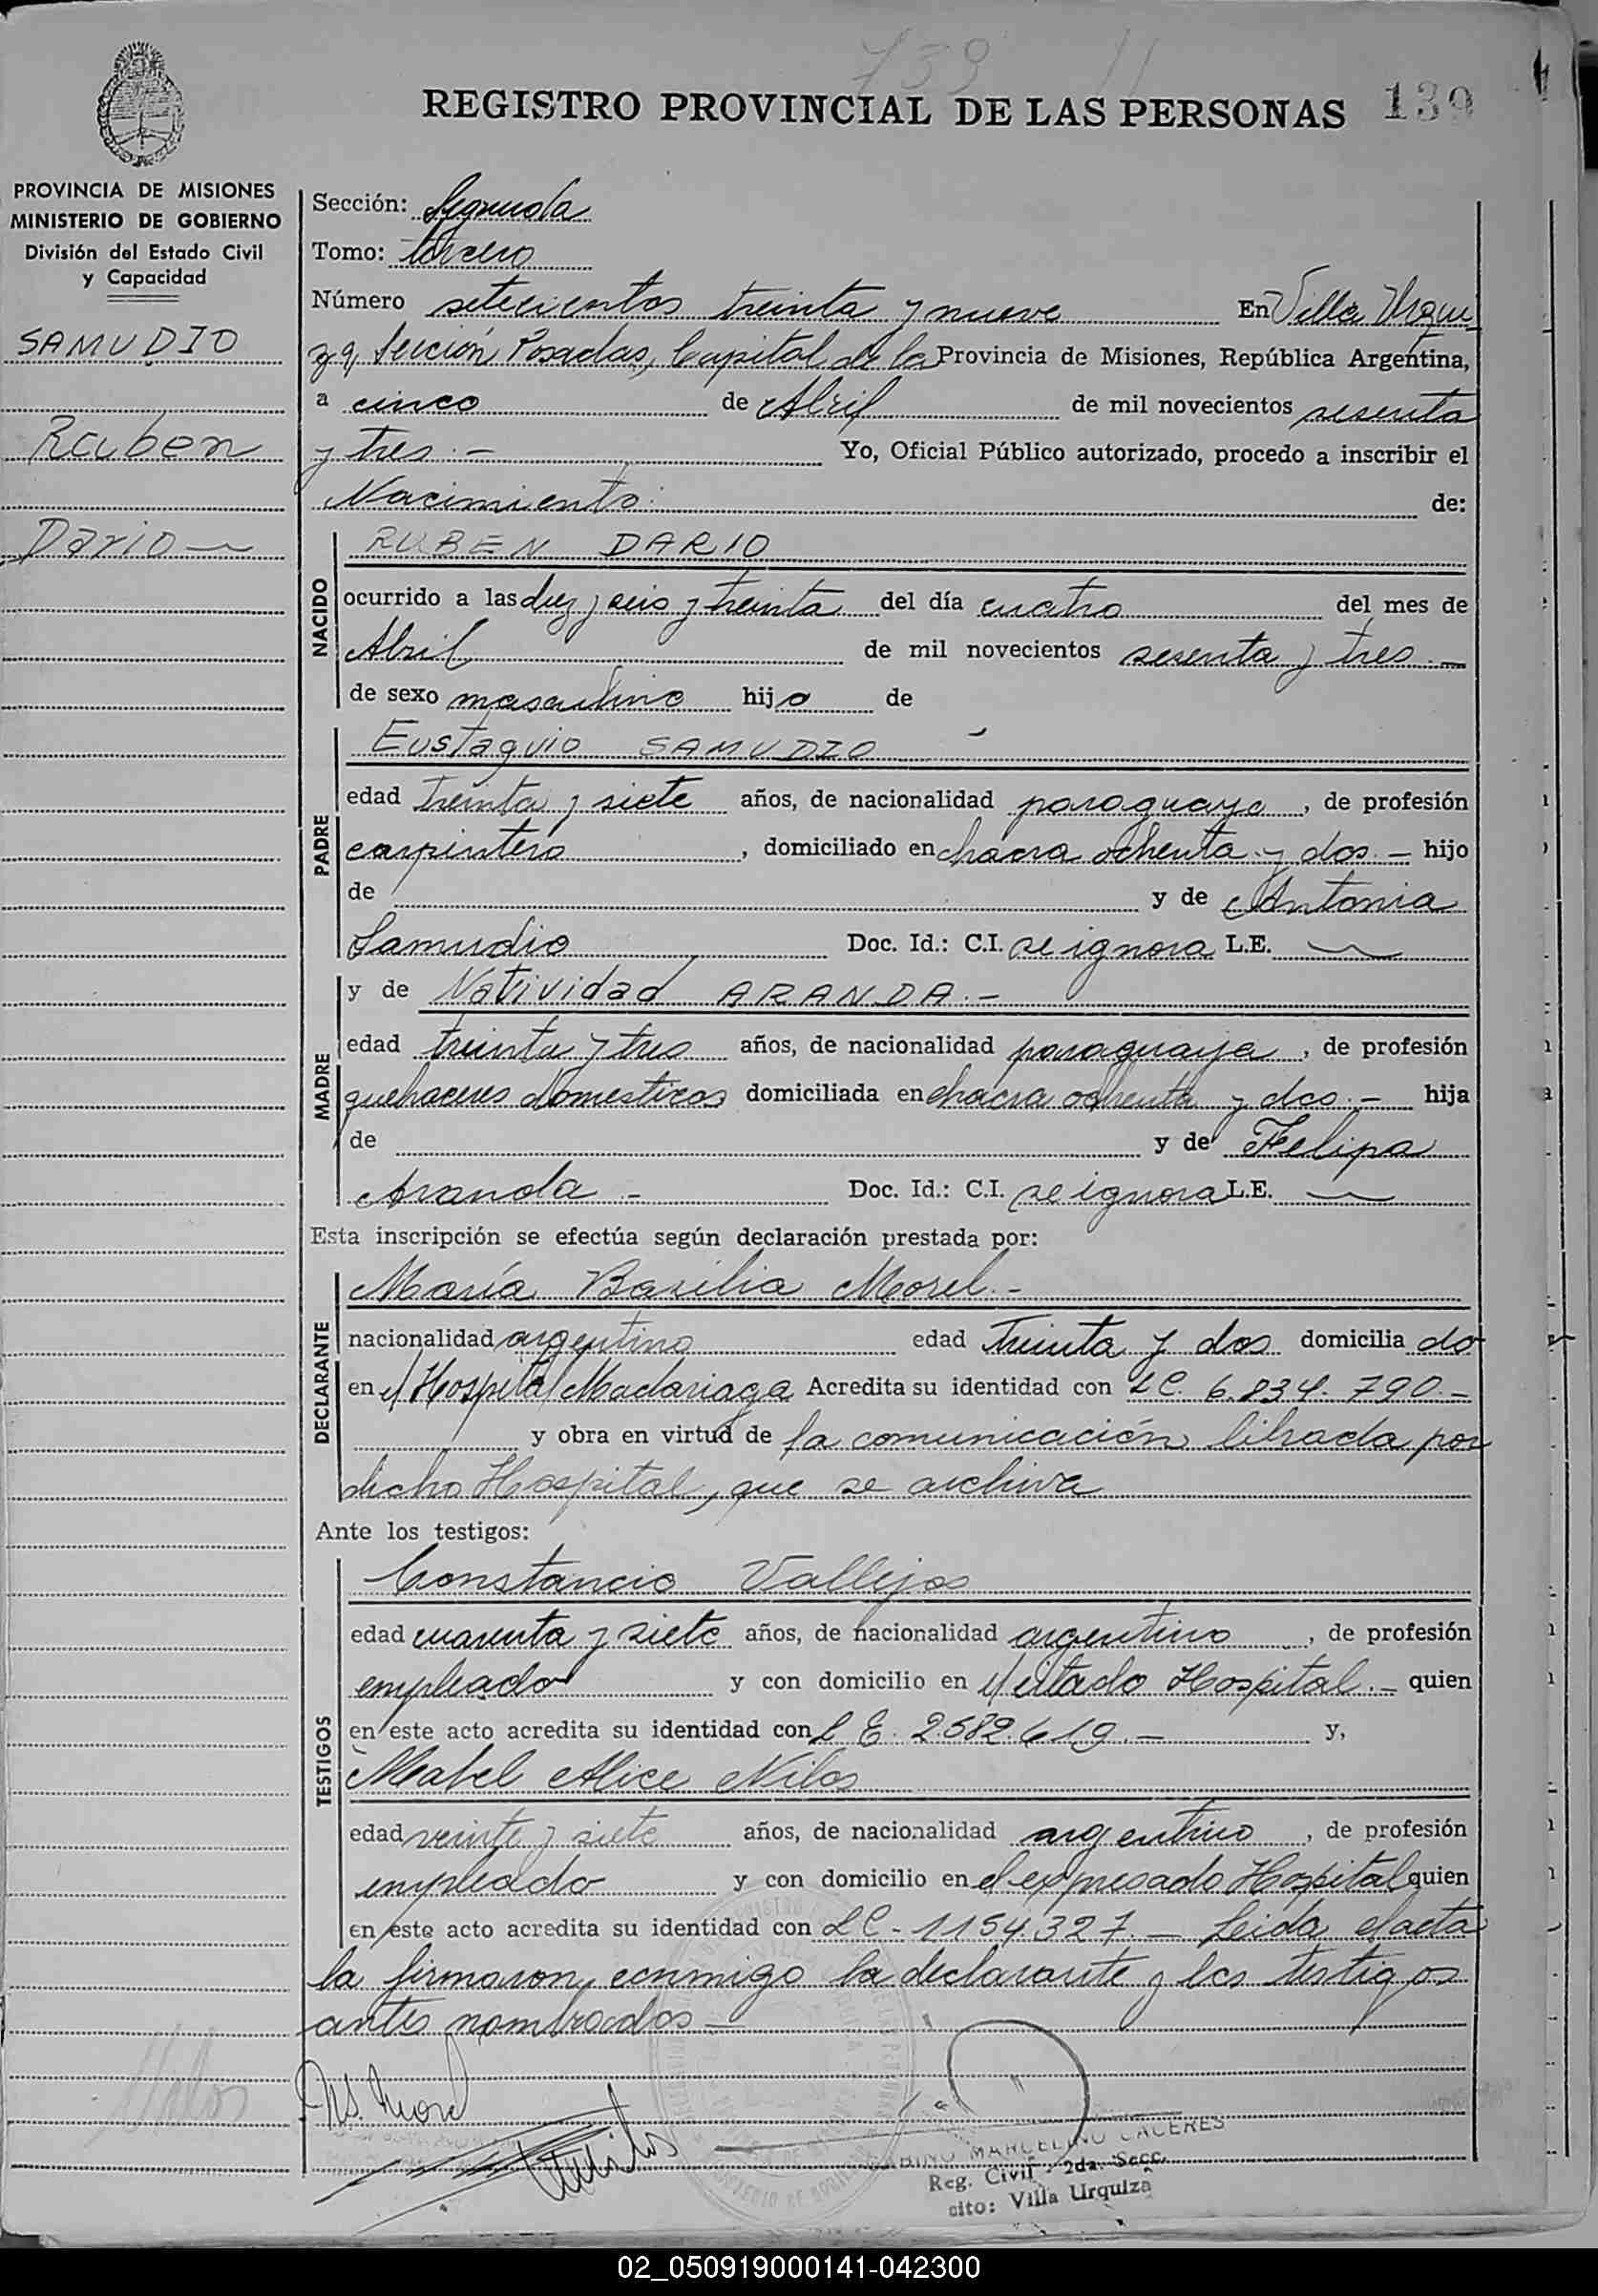 739 11
REGISTRO PROVINCIAL DE LAS PERSONAS 139
PROVINCIA DE MISIONES
MINISTERIO DE GOBIERNO
División del Estado Civil
y Capacidad
SAMUDIO
Ruben
Dario
Sección: Segunda
Tomo: tercero
Número setecientos treinta y nueve En Villa Urqui
za, Sección Posadas, Capital de la Provincia de Misiones, República Argentina,
a cinco de Abril de mil novecientos sesenta
y tres.- Yo, Oficial Público autorizado, procedo a inscribir el
Nacimiento de:
NACIDO
RUBEN DARIO
ocurrido a las diez y seis y treinta del día cuatro del mes de
Abril de mil novecientos sesenta y tres.-
de sexo masculino hijo de
PADRE
Eustaquio SAMUDIO
edad treinta y siete años, de nacionalidad paraguaya, de profesión
carpintero, domiciliado en chacra ochenta y dos.- hijo
de y de Antonia
Samudio Doc. Id.: C.I. se ignora L.E.
MADRE
y de Natividad ARANDA.-
edad treinta y tres años, de nacionalidad paraguaya, de profesión
quehaceres domesticos domiciliada en chacra ochenta y dos.- hija
de y de Felipa
Aranda - Doc. Id.: C.I. se ignora L.E.
Esta inscripción se efectúa según declaración prestada por:
DECLARANTE
María Basilia Morel.-
nacionalidad argentina edad treinta y dos domicilia do
en el Hospital Madariaga Acredita su identidad con LC. 6.834.790.-
y obra en virtud de la comunicación librada por
dicho Hospital, que se archiva
Ante los testigos:
TESTIGOS
Constancio Vallejos
edad cuarenta y siete años, de nacionalidad argentino, de profesión
empleado y con domicilio en el citado Hospital.- quien
en este acto acredita su identidad con L E. 2.582.619.- y,
Mabel Alice Nilos
edad veinte y siete años, de nacionalidad argentino, de profesión
empleado y con domicilio en el expresado Hospital quien
en este acto acredita su identidad con LC - 1154.327.- Leida el acta
la firmaron conmigo la declarante y los testigos
antes nombrados -
MARCELINO CACERES
Reg. Civil - 2da. Secc.
cito: Villa Urquiza
02_050919000141-042300